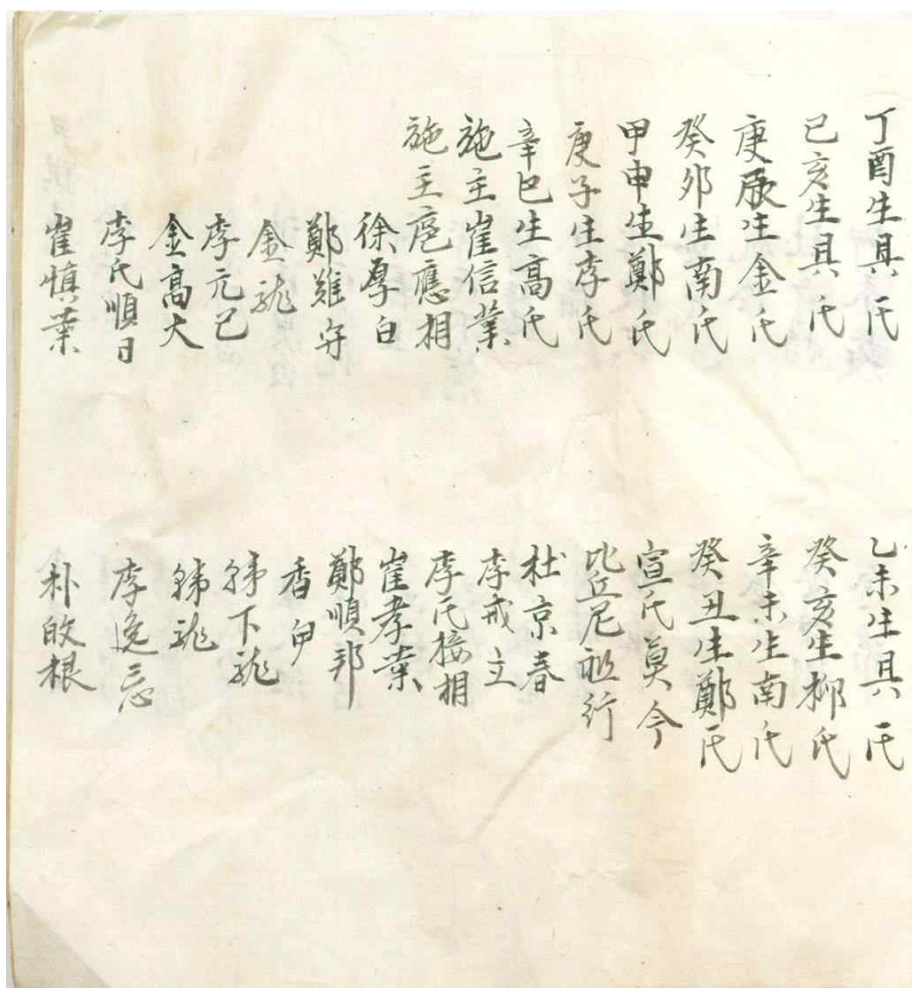 丁酉生具氏
己亥生具氏
庚辰生金氏
癸卯生南氏
甲申生鄭氏
庚子生李氏
辛巳生高氏
施主崔信業
施主扈應相
徐厚白
鄭難守
金龍
李元己
金高大
李氏順日
崔愼業
乙未生具氏
癸亥生柳氏
辛未生南氏
癸丑生鄭氏
宣氏莫今
比丘尼祖行
杜京春
李戒主
李氏接相
崔孝業
鄭順邦
香
韩下龍
韩龍
李逸忘
朴根